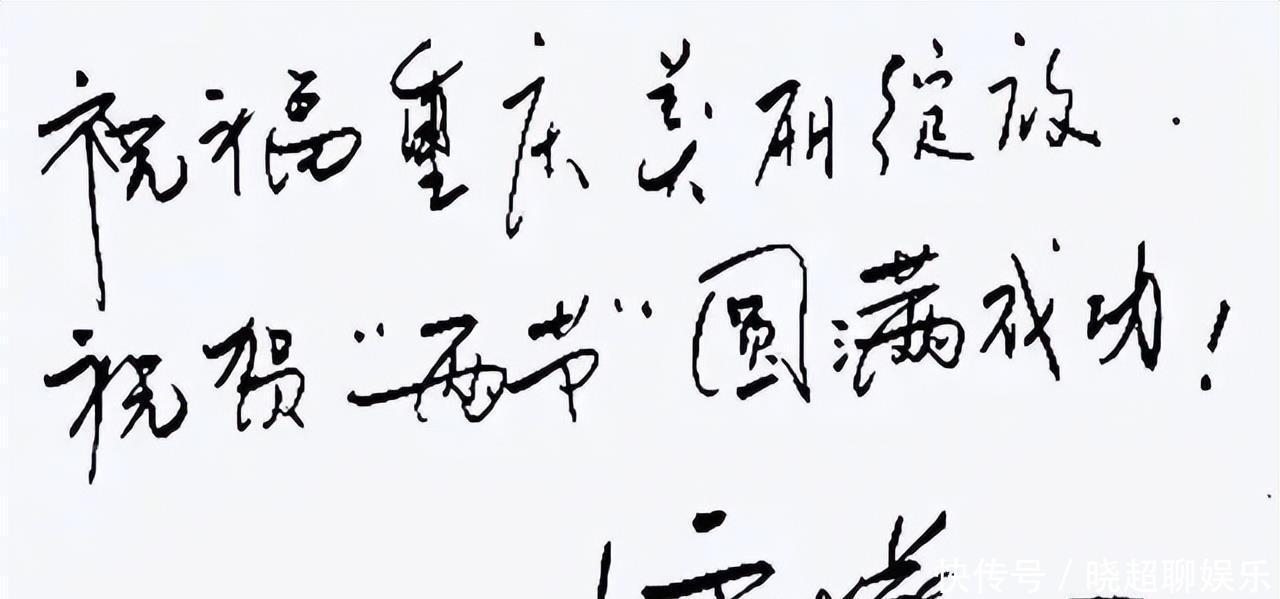 祝福重庆美丽绽放.
祝贺“两节”圆满成功!
快传号 / 晓超聊娱乐